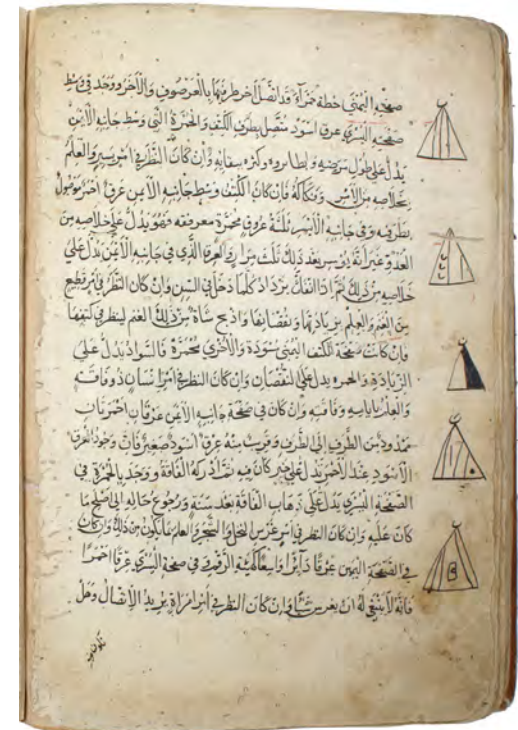 صفحته اليمنى خطة خضرآء قد اتصل آخر طرفها بالغرضوف والآخر ووجد في وسط
صفحته اليسرى عرق اسود متصل بطرف الكتف والحمرة التي وسط جانبه الأيمن
يدل على طول مرضه وكثره سقامه وان كان النظر في امر سير والعلم
بخلاصه من الأسر ونكاله فان كان الكتف وسط جانبه الأيمن عرق احمر موصول
بطرفيه وفي جانبه الأيسر ثلثة عروق محمرة معروفه فهو يدل على خلاصه من
العدو غير انه يوسر بعد ذلك ثلث مرار العرق الذي في جانبه الأيمن يدل على
خلاصه من ذلك ثم اذا انفك يزداد كلما دخل في السن وان كان النظر في امر قطيع
من الغنم والعلم بزيادتها ونقصانها فاذبح شاة من ذلك الغنم لينظر في كتفها
فان كانت صفحة الكتف اليمنى مسودة والأخرى محمرة فالسواد يدل على
الزيادة والحمره يدل على النقصان وان كان النظر في امر انسان ذو فاقة
والعلم باياسه وفاقته وان كان في صفحة جانبه الأيمن عرقان احمران
ممدودين من الطرف الى الطرف وقريب منه عرق اسود صغير فان وجود العرق
الأسود عند الأحمر يدل على خير كان فيه ثم ادركه الفاقة ووجد بالحمرة في
الصفحة اليسرى يدل على ذهاب الفاقة بعد سنة ورجوع حاله الى اصلح ما
كان عليه وان كان النظر في امر غرس النخل والشجر والعلم بما يكون من ذلك وان كان
في الصفحة اليمين عرقا دآئرا واسعا كهيئة الرقم في صفحة اليسرى عرقا احمرا
فانه لا ينبغي له ان يغرس شيئا وان كان النظر في امر امراة يريد الانتقال وهل